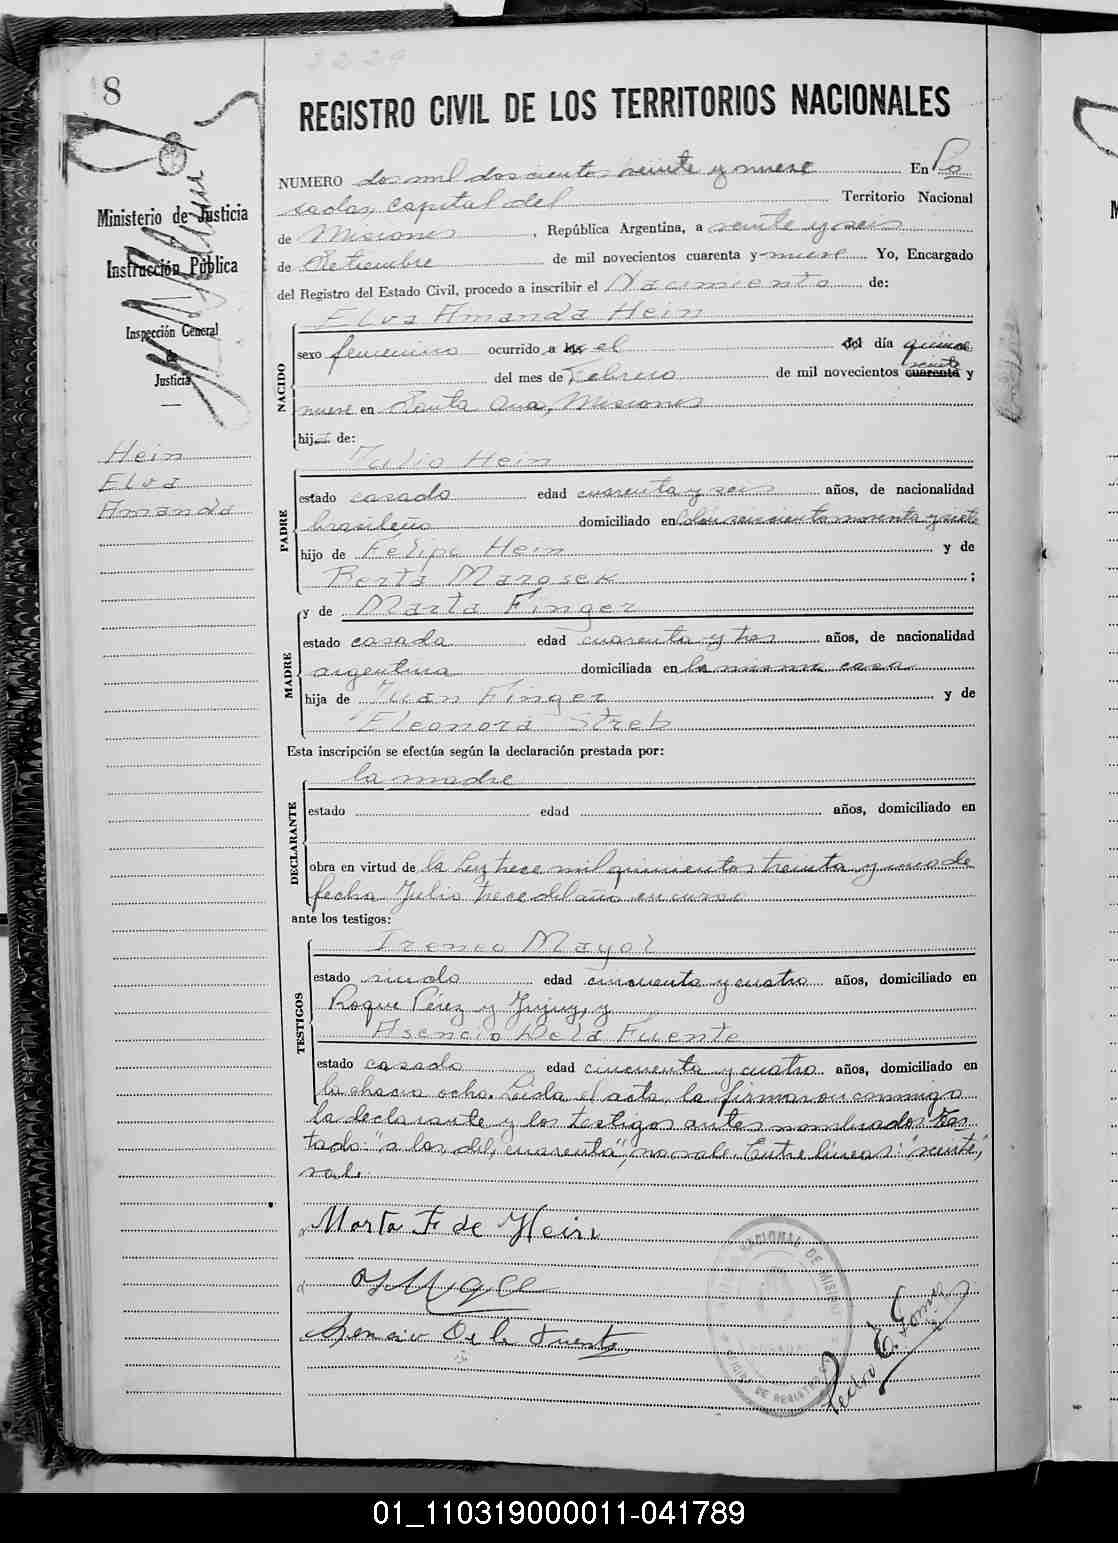 2229
8
REGISTRO CIVIL DE LOS TERRITORIOS NACIONALES
Ministerio de Justicia
Instrucción Pública
Inspección General
de
Justicia
Hein
Elva
Amanda
NUMERO dos mil doscientos veinte y nueve En Po
sadas, capital del Territorio Nacional
de Misiones, República Argentina, a veinte y seis
de Setiembre de mil novecientos cuarenta y nueve Yo, Encargado
del Registro del Estado Civil, procedo a inscribir el Nacimiento de:
Elva Amanda Hein
NACIDO
sexo femenino ocurrido a las el del día quince
veinte
del mes de Febrero de mil novecientos cuarenta y
nueve en Santa Ana, Misiones
hija de:
Julio Hein
PADRE
estado casado edad cuarenta y seis años, de nacionalidad
brasileño domiciliado en Colón seiscientos noventa y siete
hijo de Felipe Hein y de
Berta Marosek ;
y de Marta Finger
MADRE
estado casada edad cuarenta y tres años, de nacionalidad
argentina domiciliada en la misma casa
hija de Juan Finger y de
Eleonora Streb
Esta inscripción se efectúa según la declaración prestada por:
la madre
DECLARANTE
estado edad años, domiciliado en
obra en virtud de la Ley trece mil quinientos treinta y uno de
fecha Julio trece del año en curso
ante los testigos:
Ireneo Mayol
TESTIGOS
estado viudo edad cincuenta y cuatro años, domiciliado en
Roque Pérez y Jujuy, y
Asencio De la Fuente
estado casado edad cincuenta y cuatro años, domiciliado en
la chacra ocho. Leída el acta, la firmaron conmigo
la declarante y los testigos antes nombrados. Tes
tado: "a las, del, cuarenta", no vale. Entre líneas: "veinte",
vale.
Marta F. de Hein
Asencio De la Fuente
Pedro E. Gomez
01_110319000011-041789